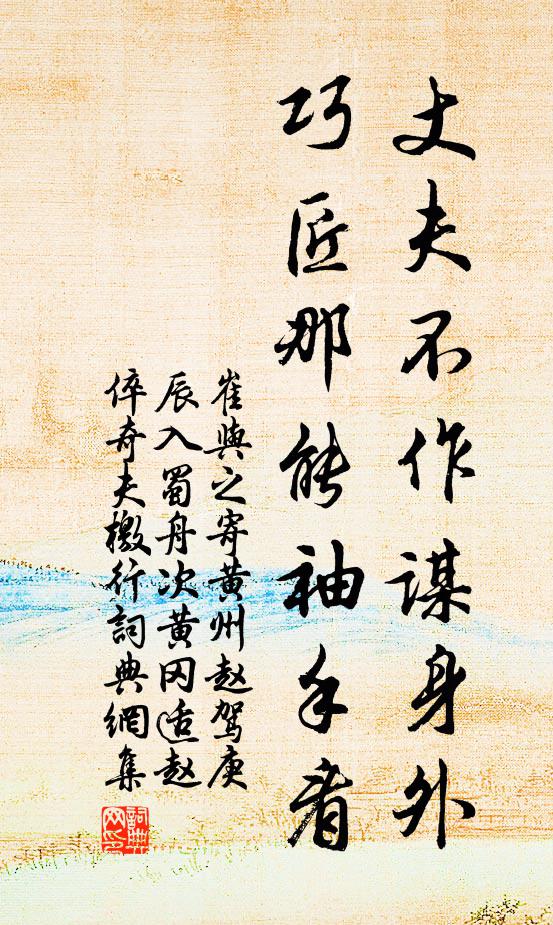 丈夫不作谋身外
巧匠那能袖手看
崔與之寄黄州赵驾庚
辰入蜀舟次黄冈适赵
倅奇夫檄行詞典網集
詞典网印